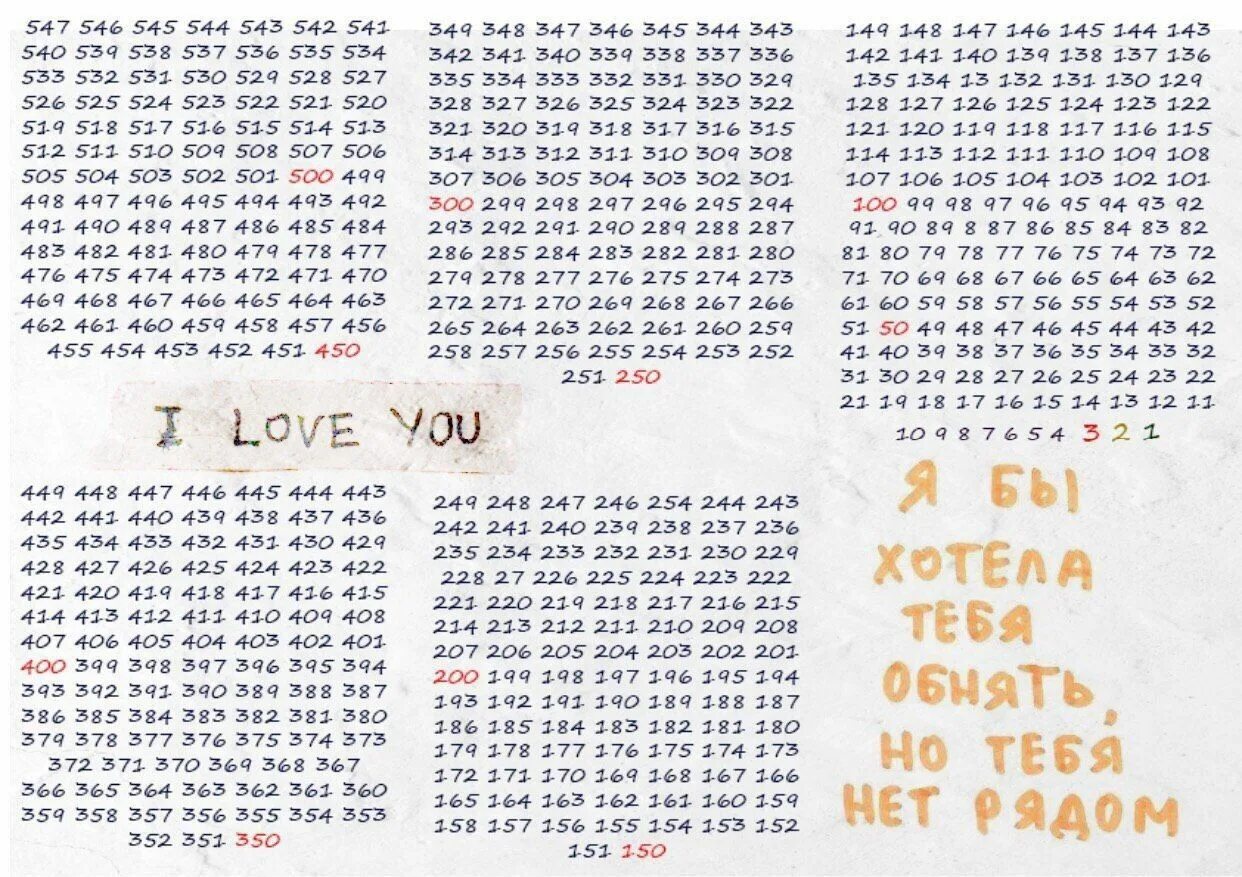 547 546 545 544 543 542 541
540 539 538 537 536 535 534
533 532 531 530 529 528 527
526 525 524 523 522 521 520
519 518 517 516 515 514 513
512 511 510 509 508 507 506
505 504 503 502 501 500 499
498 497 496 495 494 493 492
491 490 489 487 486 485 484
483 482 481 480 479 478 477
476 475 474 473 472 471 470
469 468 467 466 465 464 463
462 461 460 459 458 457 456
455 454 453 452 451 450
I LOVE YOU
449 448 447 446 445 444 443
442 441 440 439 438 437 436
435 434 433 432 431 430 429
428 427 426 425 424 423 422
421 420 419 418 417 416 415
414 413 412 411 410 409 408
407 406 405 404 403 402 401
400 399 398 397 396 395 394
393 392 391 390 389 388 387
386 385 384 383 382 381 380
379 378 377 376 375 374 373
372 371 370 369 368 367
366 365 364 363 362 361 360
359 358 357 356 355 354 353
352 351 350
349 348 347 346 345 344 343
342 341 340 339 338 337 336
335 334 333 332 331 330 329
328 327 326 325 324 323 322
321 320 319 318 317 316 315
314 313 312 311 310 309 308
307 306 305 304 303 302 301
300 299 298 297 296 295 294
293 292 291 290 289 288 287
286 285 284 283 282 281 280
279 278 277 276 275 274 273
272 271 270 269 268 267 266
265 264 263 262 261 260 259
258 257 256 255 254 253 252
251 250
249 248 247 246 254 244 243
242 241 240 239 238 237 236
235 234 233 232 231 230 229
228 27 226 225 224 223 222
221 220 219 218 217 216 215
214 213 212 211 210 209 208
207 206 205 204 203 202 201
200 199 198 197 196 195 194
193 192 191 190 189 188 187
186 185 184 183 182 181 180
179 178 177 176 175 174 173
172 171 170 169 168 167 166
165 164 163 162 161 160 159
158 157 156 155 154 153 152
151 150
149 148 147 146 145 144 143
142 141 140 139 138 137 136
135 134 13 132 131 130 129
128 127 126 125 124 123 122
121 120 119 118 117 116 115
114 113 112 111 110 109 108
107 106 105 104 103 102 101
100 99 98 97 96 95 94 93 92
91 90 89 8 87 86 85 84 83 82
81 80 79 78 77 76 75 74 73 72
71 70 69 68 67 66 65 64 63 62
61 60 59 58 57 56 55 54 53 52
51 50 49 48 47 46 45 44 43 42
41 40 39 38 37 36 35 34 33 32
31 30 29 28 27 26 25 24 23 22
21 19 18 17 16 15 14 13 12 11
10 9 8 7 6 5 4 3 2 1
Я БЫ
ХОТЕЛА
ТЕБЯ
ОБНЯТЬ,
НО ТЕБЯ
НЕТ РЯДОМ